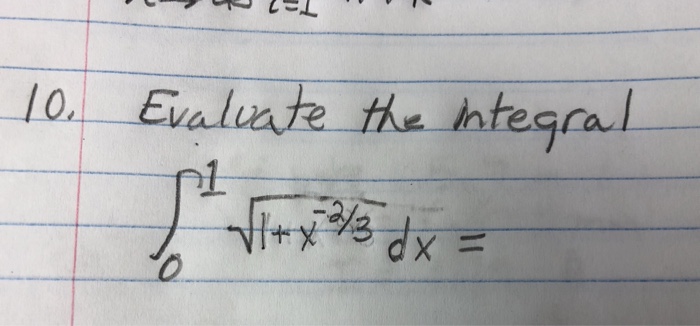 i=1
10. Evaluate the integral
∫₀¹ √(1+x^(-2/3)) dx =